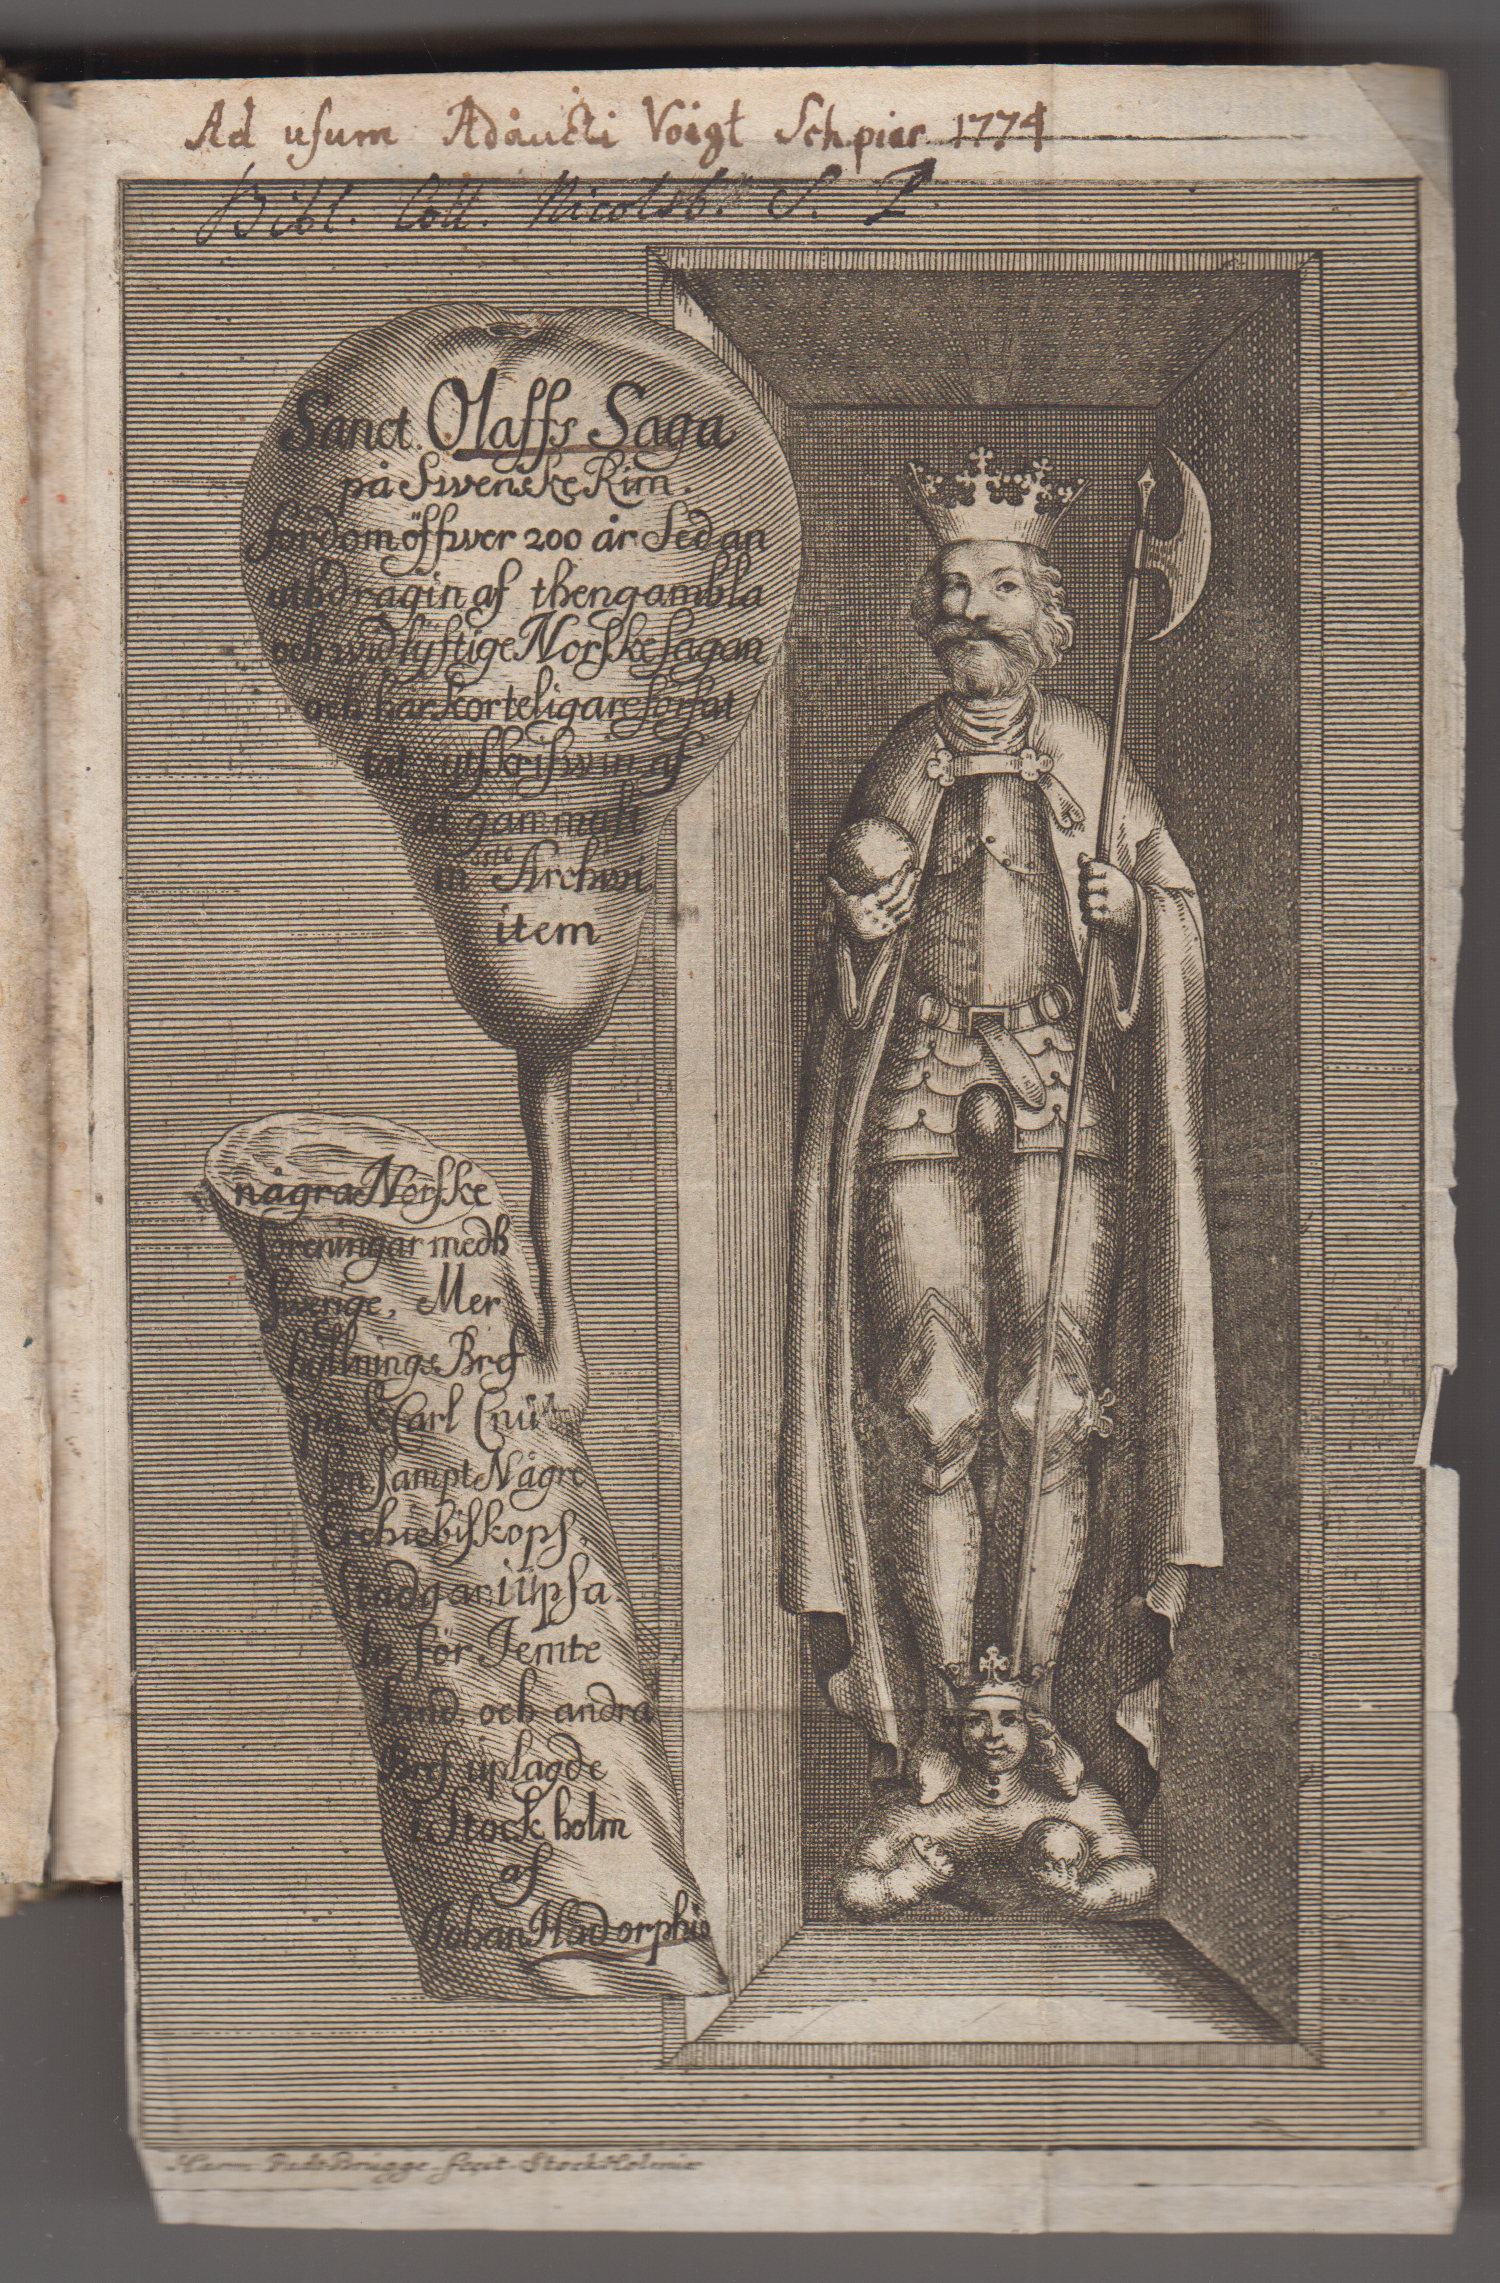 Ad usum Adaucti Voigt Sch. piar. 1774
Bibl. Coll. Nicolsb. S. P.
Sanct. Olaffs Saga
på Swenske Rim.
fordom öffwer 200 år Sedan
uthdragin af then gambla
och widlyftige Norske sagan
och här korteligare förfat
utskrifwin af
gammalt
Archivi
item
några Norske
föreningar medh
Swerige, Mer
hyllnings Bref
på K Carl Cnut
son sampt Någre
Erchiebiskops
stadgar i Upsa
la för Jemte
land och andra
Bref uplagde
i Stockholm
af
Johan Hadorphio
Herm: Padt Brügge fecit Stockholmiæ